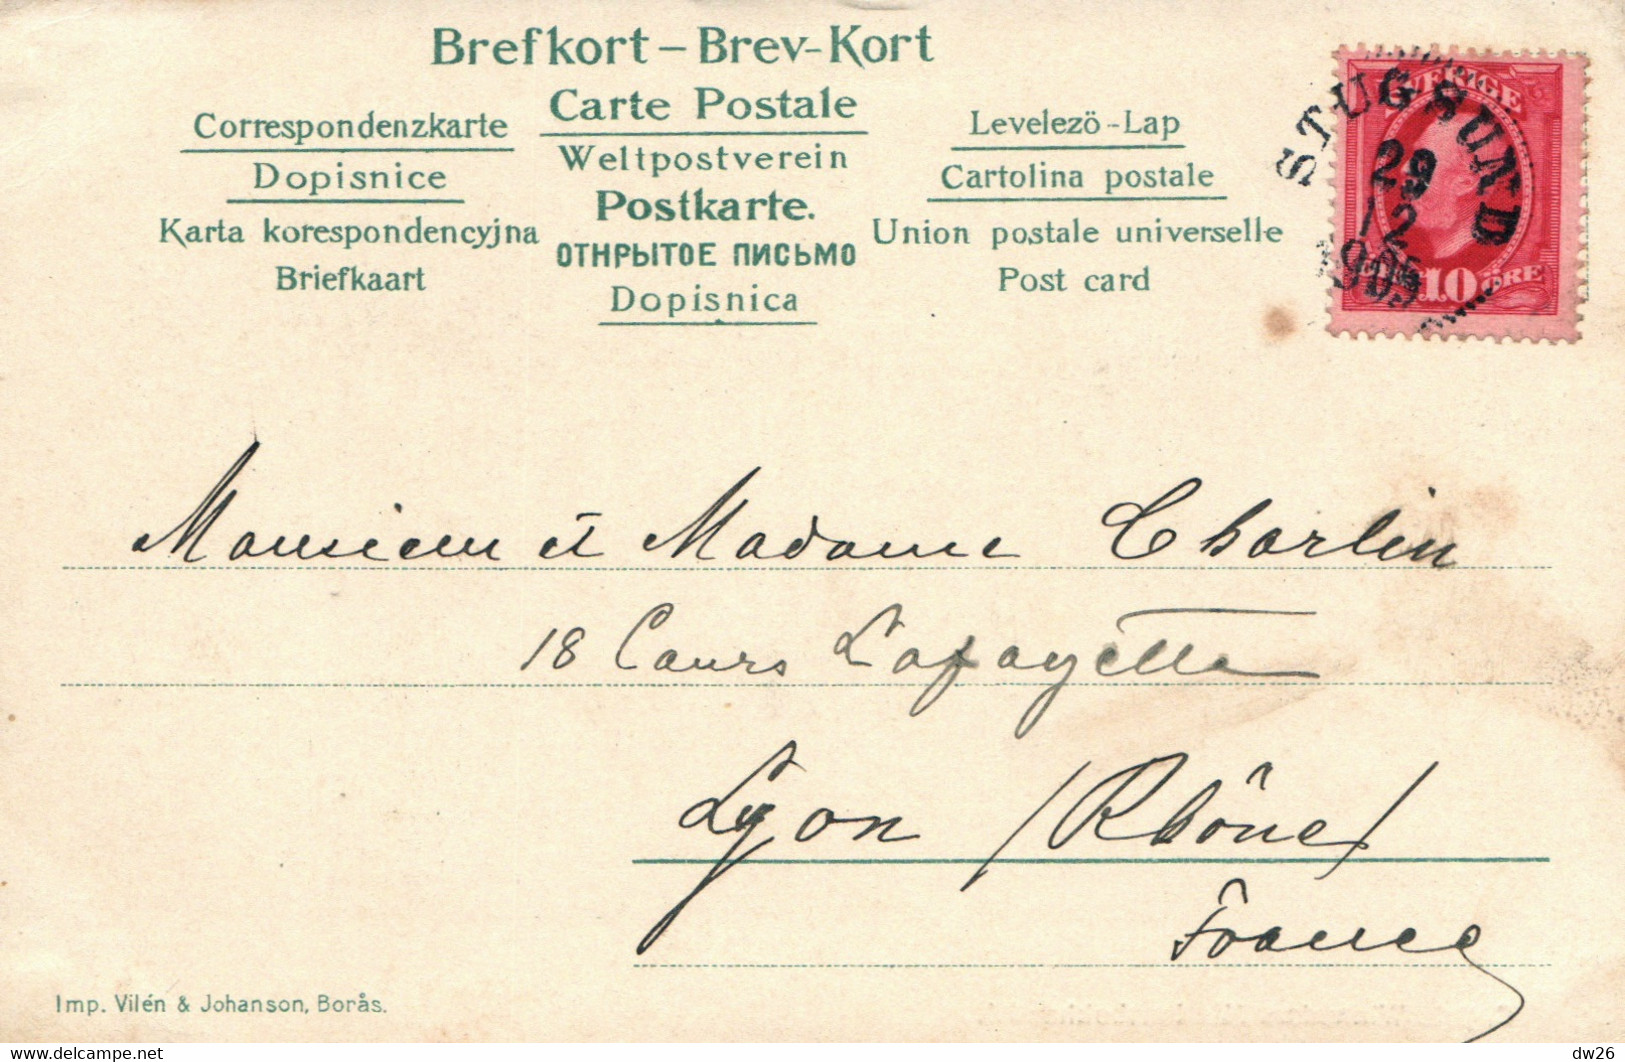 Brefkort – Brev-Kort
Carte Postale
Correspondenzkarte
Weltpostverein
Levelezö-Lap
Dopisnice
Postkarte.
Cartolina postale
Karta korespondencyjna
ОТНРЫТОЕ ПИСЬМО
Union postale universelle
Briefkaart
Dopisnica
Post card
SVERIGE
10 ÖRE
STUGSUND
29
12
1905
Monsieur et Madame Charlin
18 Cours Lafayette
Lyon (Rhône)
France
Imp. Vilén & Johanson, Borås.
www.delcampe.net
dw26